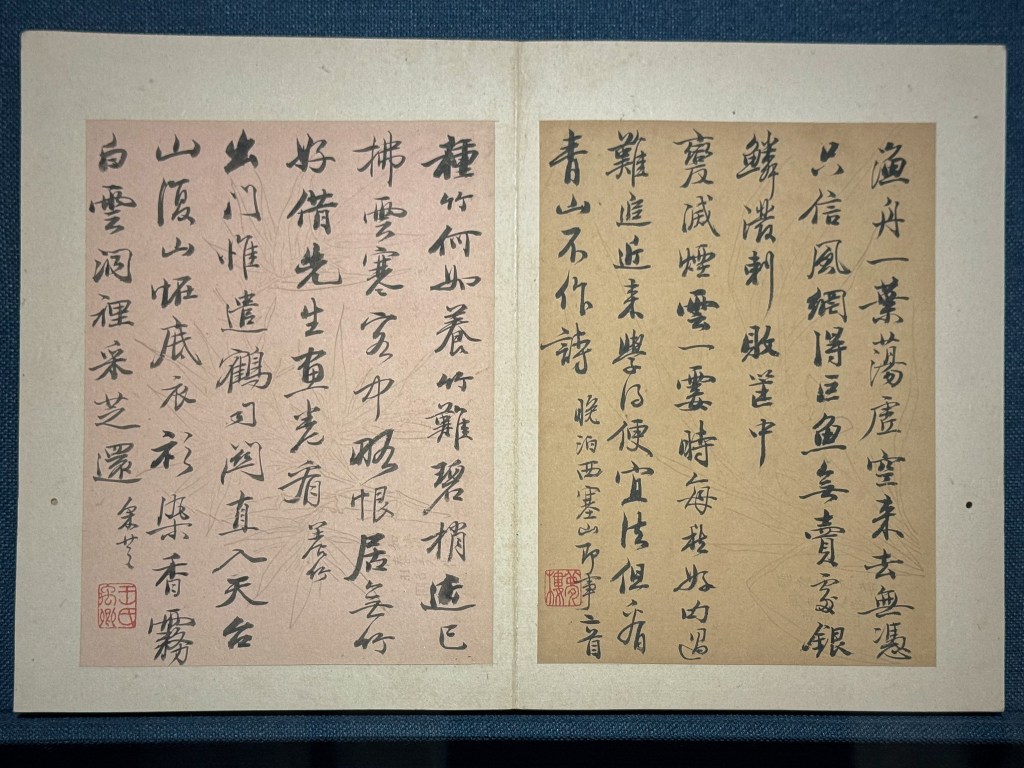 漁舟一葉蕩虛空來去無憑
只信風網得巨魚無賣處銀
鱗潑剌敗筐中
變滅煙雲一霎時每於好句過
難追近來學得便宜法但看
青山不作詩 晚泊西塞山即事二首
夢樓
種竹何如養竹難碧梢遮已
拂雲寒客中略恨居無竹
好借先生畫卷看 養竹
出門惟遣鶴司關直入天台
山復山怪底衣衫染香霧
白雲洞裡采芝還 采芝
王氏禹卿